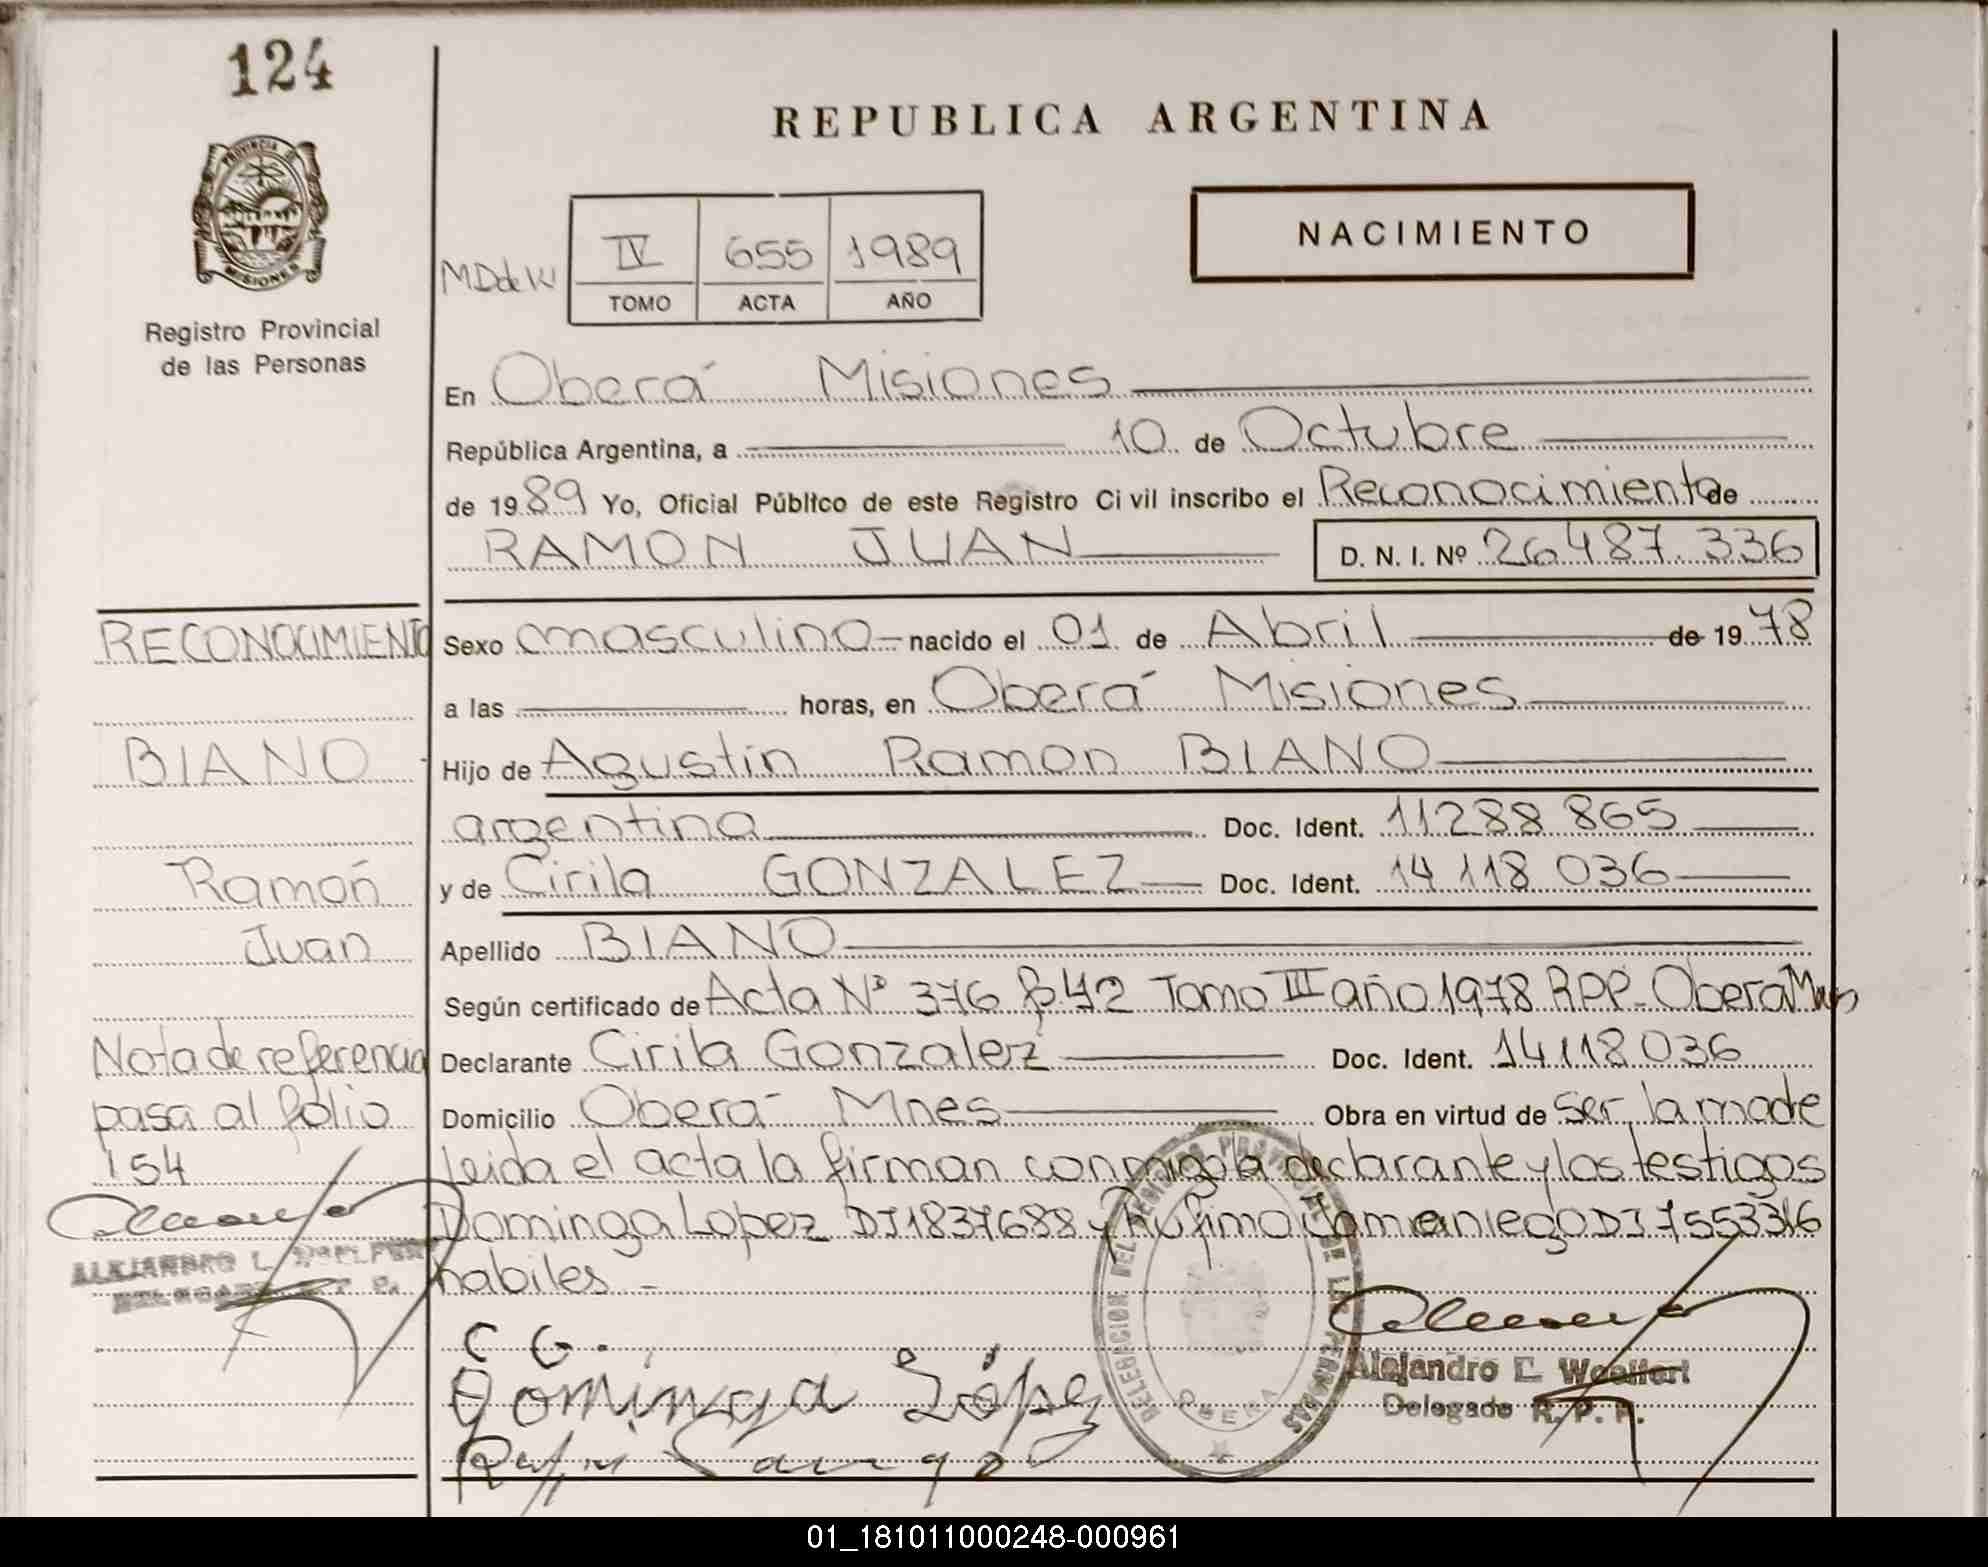 124
PROVINCIA DE
MISIONES
Registro Provincial
de las Personas
REPUBLICA ARGENTINA
NACIMIENTO
MD de K
IV 655 1989
TOMO ACTA AÑO
En Oberá Misiones
República Argentina, a 10 de Octubre
de 1989 Yo, Oficial Público de este Registro Civil inscribo el Reconocimiento de
RAMON JUAN D. N. I. Nº 26.487.336
RECONOCIMIENTO
BIANO
Ramón
Juan
Nota de referencia
pasa al folio
154
ALEJANDRO L. WOELFERT
DELEGADO R. P. P.
Sexo masculino nacido el 01 de Abril de 1978
a las horas, en Oberá Misiones
Hijo de Agustin Ramon BIANO
argentina Doc. Ident. 11288865
y de Cirila GONZALEZ Doc. Ident. 14 118 036
Apellido BIANO
Según certificado de Acta Nº 376 fº 42 Tomo III año 1978 RPP-Obera Mnes
Declarante Cirila Gonzalez Doc. Ident. 14.118.036
Domicilio Oberá Mnes Obra en virtud de ser la made
leida el acta la firman conmigo la declarante y los testigos
Dominga Lopez DI 1837688 y Rufino Samaniego DI 7553316
habiles -
C G.
Dominga López
DELEGACION DEL REGISTRO PROVINCIAL DE LAS PERSONAS
OBERA
Alejandro L. Woelfert
Delegado R. P. P.
01_181011000248-000961